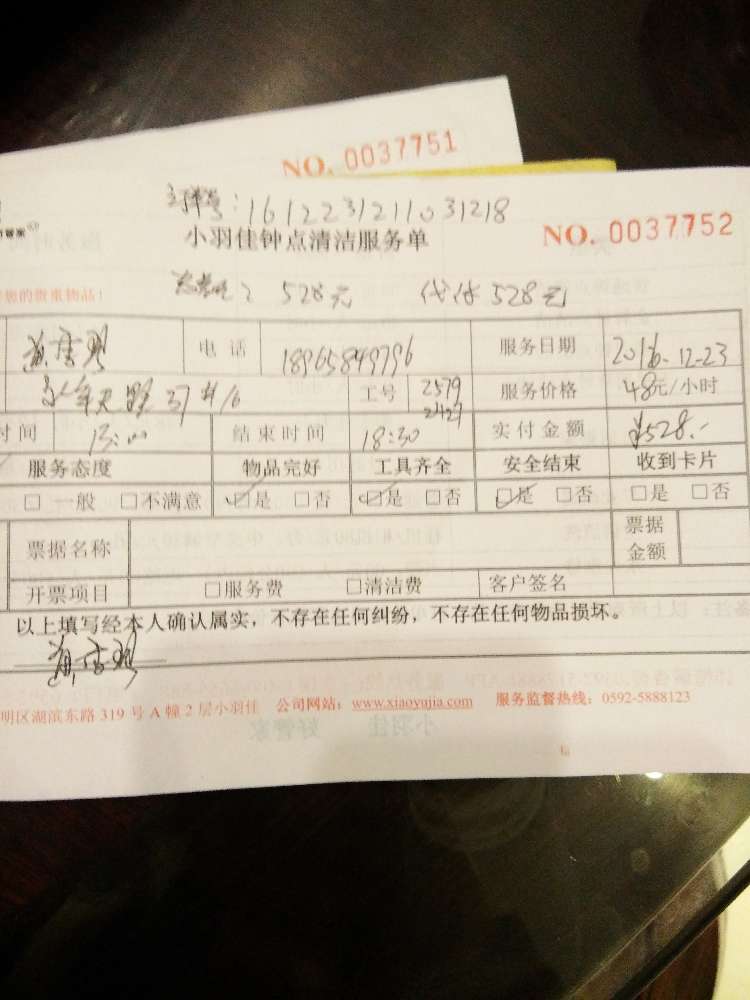 NO. 0037751
订单号:161223121103​1218
小羽佳钟点清洁服务单
NO. 0037752
您的贵重物品!
528元 代付528元
电话 18965849796 服务日期 2016.12.23
37#16 工号 2579 2427 服务价格 48元/小时
时间 13:00 结束时间 18:30 实付金额 ¥528.-
服务态度 物品完好 工具齐全 安全结束 收到卡片
□一般 □不满意 ☑是 □否 ☑是 □否 ☑是 □否 □是 □否
票据名称 票据金额
开票项目 □服务费 □清洁费 客户签名
以上填写经本人确认属实,不存在任何纠纷,不存在任何物品损坏。
明区湖滨东路 319 号 A 幢 2 层小羽佳 公司网站:www.xiaoyujia.com 服务监督热线:0592-5888123